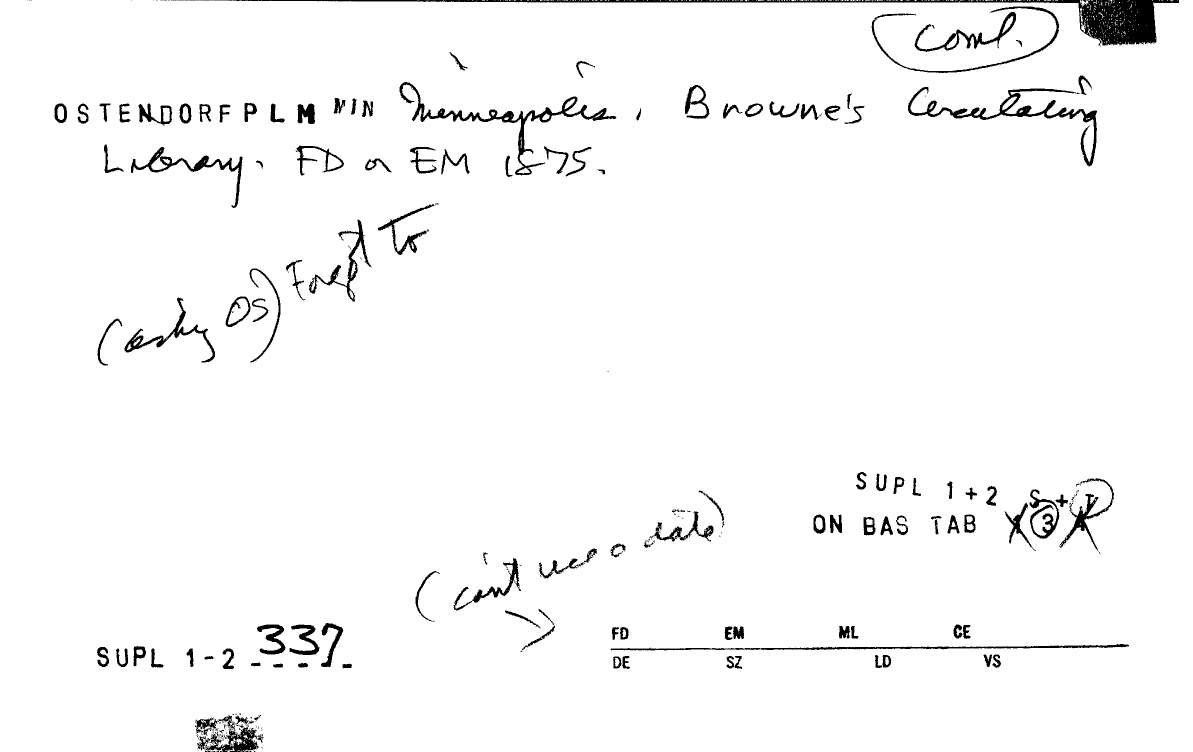 Coml.
OSTENDORF PLM MIN Minneapolis, Browne's Circulating
Library. FD or EM 1875.
OS) Forgot To
SUPL 1+2 S+
ON BAS TAB 3
(can't use date)
FD EM ML CE
SUPL 1-2 337
DE SZ LD VS